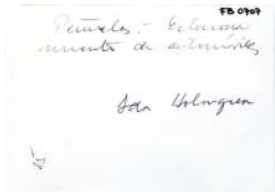 FB 0707
Peñuelas.- Estaciona
miento de automóviles
Ada Holmgren